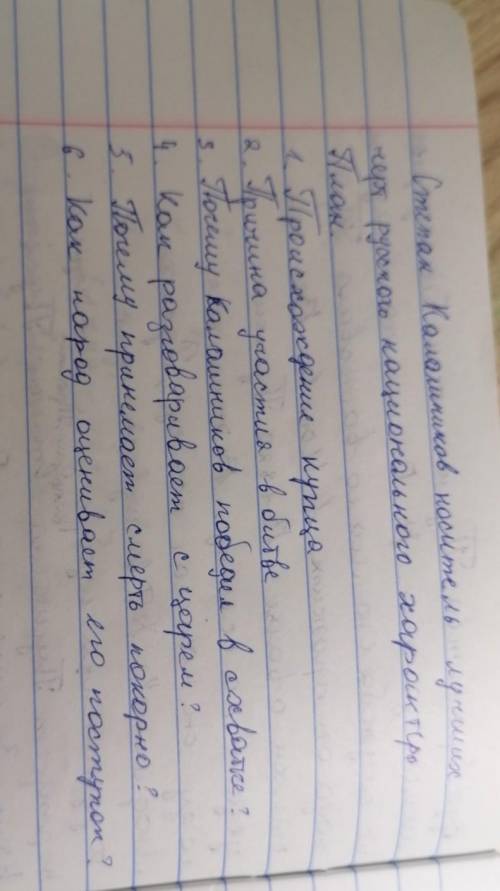 Степан Калашников носитель лучших
черт русского национального характера
План.
1. Происхождение купца
2. Причина участия в битве
3. Почему Калашников победил в схватке?
4. Как разговаривает с царем?
5. Почему принемает смерть покорно?
6. Как народ оценивает его поступок?